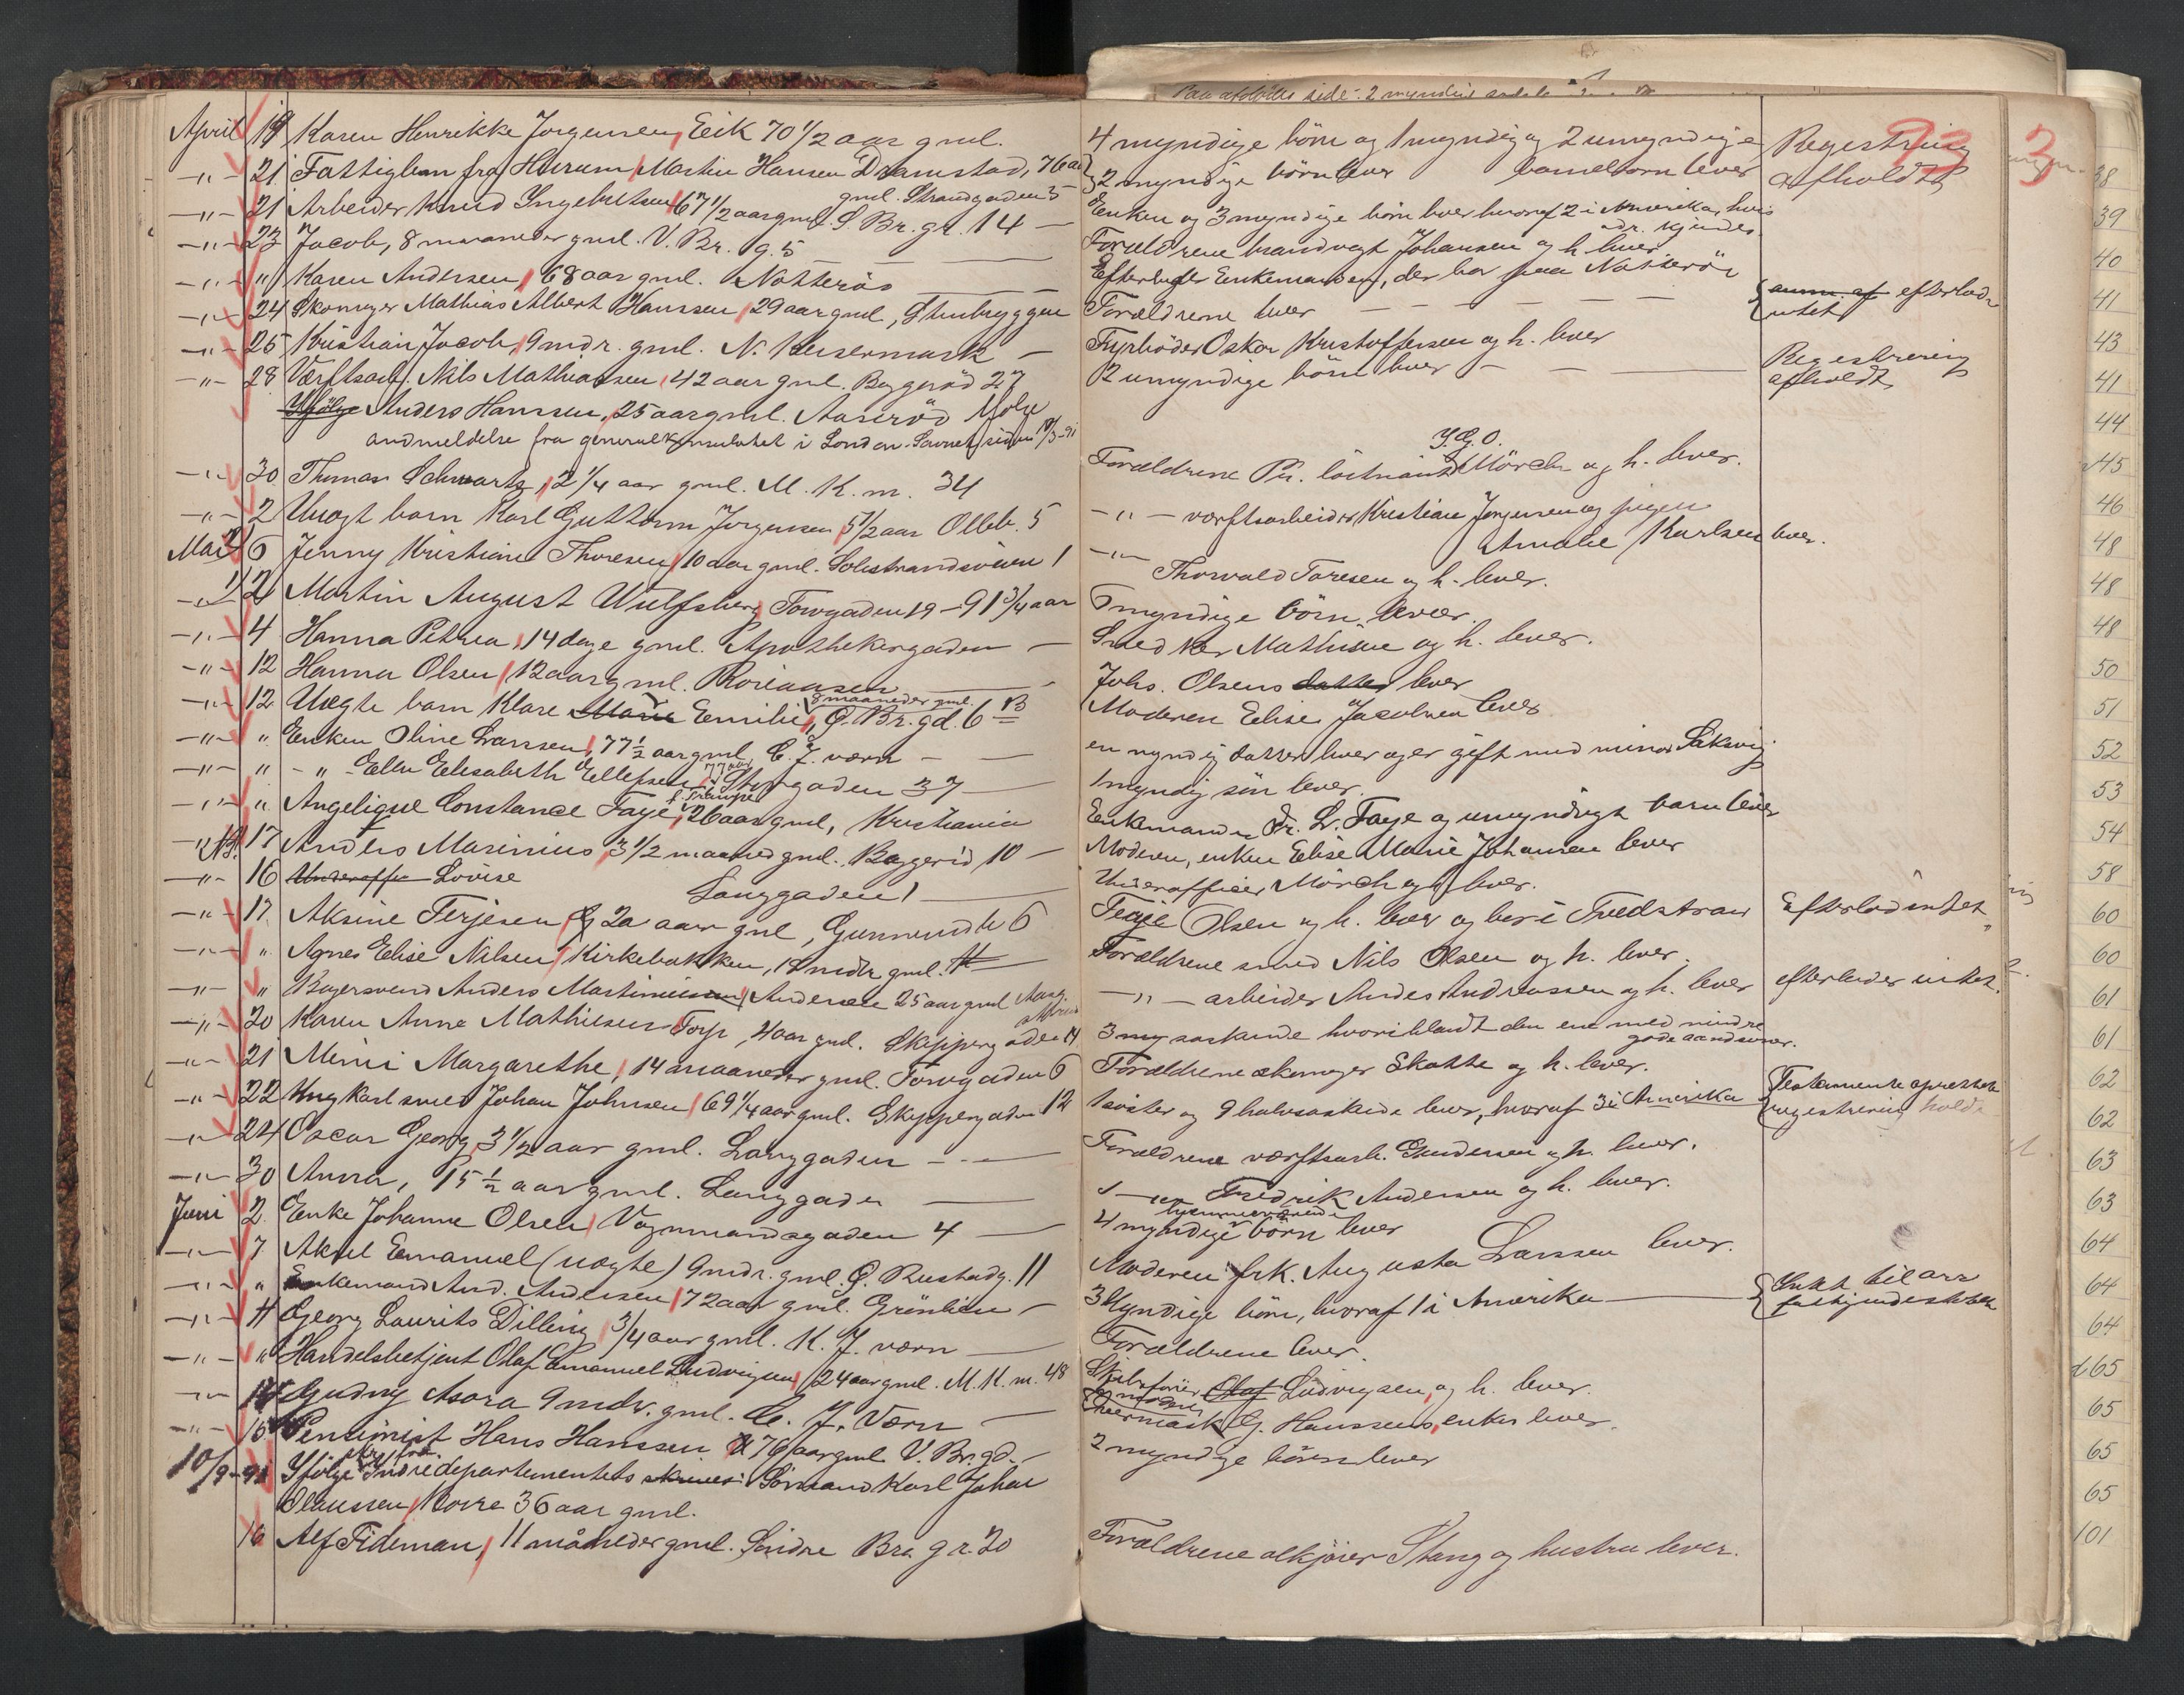 April 19 Karen Henrikke Jørgensen, Eik 70 1/2 aar gml.
-"- 21 Fattiglem fra Hurum, Martin Hansen Dramstad, 76 aar
gml. Strandgaden 5
-"- 21 Arbeider Knud Ingebretsen 67 1/2 aar gml. S. Br. gr. 14 -
-"- 23 Jacob, 8 maaneder gml. V. Br. g. 5
-"- " Karen Andersen, 68 aar gml. Nøtterø
-"- 24 Skomager Mathias Albert Hanssen, 29 aar gml, Stenbryggen
-"- 25 Kristian Jacob, 9 mdr. gml. N. Keisermark -
-"- 28 Værftsarb. Nils Mathiassen, 42 aar gml. Baggerød 27
Ifølge Anders Hanssen, 25 aar gml. Aaserød Ifølge
andmeldelse fra generalkonsulatet i London. Savnet siden 18/3-91
-"- 30 Thomas Schwartz, 2 1/4 aar gml. M. K. m. 34
-"- 2 Uægt barn Karl Guttorm Jørgensen, 5 1/2 aar Olleb. 5
Mai 6 Jenny Kristiane Thoresen, 10 aar gml. Solistrandsveien 1
-"- 2 Martin August Wulfsberg, Torvgaden 19 - 91 3/4 aar
-"- 4 Hanna Petrea, 14 dage gml. Apothekergaden -
-"- 12 Hanna Olsen, 12 aar gml. Roreaasen
8 maaneder gml.
-"- 12 Uægte barn Klare Marie Emilie, Ø. Br. gd. 6 B
-"- " Enken Oline Larssen, 77 1/2 aar gml C. J. værn -
-"- " -"- Ellen Elisabeth Ellefsen, 77 aar Storgaden 37
-"- " Angelique Constance Faye, f. Trampe 26 aar gml, Kristiania
NB. 17 Anders Marinius, 3 1/2 maaned gml. Baggerød 10 -
-"- 16 Lovise Langgaden 1
-"- 17 Aksine Terjesen, 20 aar gml, Gunnerudb. 6
-"- " Agnes Elise Nilsen, Kirkebakken, 18 mdr gml.
-"- " Bagersvend Anders Andersen 25 aar gml
-"- 20 Karen Anne Mathiesen Torp, aar gml. Skippergaden 14
-"- 21 Mimi Margarethe, 14 maaneder gml. Torvgaden 6
-"- 22 Ungkarl smed Johan Johnsen, 69 1/4 aar gml. Skippergaden 12
-"- 24 Oscar Georg, 3 1/2 aar gml. Langgaden - -
-"- 30 Anna, 15 1/2 aar gml. Langgaden
Juni 2 Enke Johanne Olsen, Vognmandsgaden 4
-"- 7 Aksel Emanuel (uægte) 9 mdr. gml. Ø. Rustadg. 11
-"- " Enkemand And. Andersen, 72 aar gml. Grønlien -
-"- 11 Georg Laurits Dilling, 3/4 aar gml. K. J. værn
-"- " Handelsbetjent Olaf Emanuel Ludvigsen, 24 aar gml. M. K. m. 48
-"- 14 Gudny Asora 9 mdr. gml. C. J. Værn
-"- 15 Pensionist Hans Hanssen 76 aar gml V. Br. gd. -
10/9-91 Ifølge skr. fra Indredepartementets skrivelse: Sømand Karl Johan
Claussen, 36 aar gml.
16 Alf Fideman, 11 måneder gml. Søndre Bra. gr. 20
4 myndige børn og 1 myndig og 2 umyndige Registrering
2 myndige børn lever barnebørn lever afholdt
Enken og 3 myndige børn lever hvoraf 2 i Amerika, hvis
adr. kjendes.
Forældrene brandvagt Johansen og h. lever
Efterlader Enkemanden, der bor paa Nøtterø
efterlader
Forældrene lever - - - - intet
Fyrbøder Oskar Kristoffersen og h. lever
2 umyndige børn lever - - Registrering
afholdt
Y. G. O.
Forældrene Pr. løitnant Mørch og h. lever.
-"- værftsarbeider Kristian Jørgensen og pigen
Amalie Karlsen lever.
-"-
Thorvald Toresen og h. lever.
6 myndige børn lever.
Smed Mathisen og h. lever.
Johs. Olsens datter lever
Moderen Elise Jacobsen lever
en myndig datter lever og er gift med minør Siksvig
1 myndig søn lever.
Enkemanden Dr. L. Faye og umyndigt barn lever
Moderen, enken Elise Marie Johansen lever
Underofficer Mörch og h. lever.
Terje Olsen og h. lever og bor i Tvedstrand Efterlod intet
Forældrene smed Nils Olsen og h. lever.
-"- arbeider Andes Andreassen og h. lever efterlader intet.
3 my søskende hvoriblandt den ene med mindre
gode aandsevner.
Forældrene skomager Skatte og h. lever.
1 søster og 9 halvsøskende lever, hvoraf 3 i Amerika Testamente oprettet
registrering holdt
Forældrene værftsarb. Gundersen og h. lever.
-"- Fredrik Andersen og h. lever.
hjemmeværende
4 myndige børn lever
Moderen frk. Augusta Larssen lever.
3 Myndige børn, hvoraf 1 i Amerika
Forældrene lever.
Skibsfører Olaf Ludvigsen, og h. lever.
G. Hanssens enke lever.
2 myndige börn lever
Forældrene ølkjører Stang og hustru lever.
93
38
39
40
41
43
41
44
45
46
48
48
48
50
51
52
53
54
58
60
60
61
61
62
62
63
63
64
64
64
65
65
65
65
101